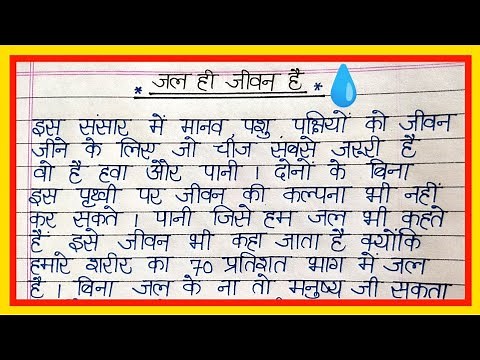 * जल ही जीवन है *
इस संसार में मानव, पशु, पक्षियों को जीवन
जीने के लिए जो चीज सबसे जरूरी है
वो है हवा और पानी । दोनों के बिना
इस पृथ्वी पर जीवन की कल्पना भी नहीं
कर सकते । पानी जिसे हम जल भी कहते
हैं इसे जीवन भी कहा जाता है क्योंकि
हमारे शरीर का 70 प्रतिशत भाग में जल
है । बिना जल के ना तो मनुष्य जी सकता